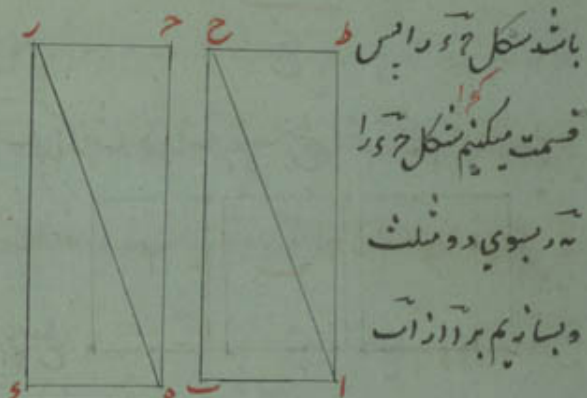 باشد شکل حـ ء را پس
قسمت میکنیم شکل حـ ء را
ه ر بسوی دو مثلث
و بسازیم بر آ از اب
ط ح حـ ر
ا ب ه ء